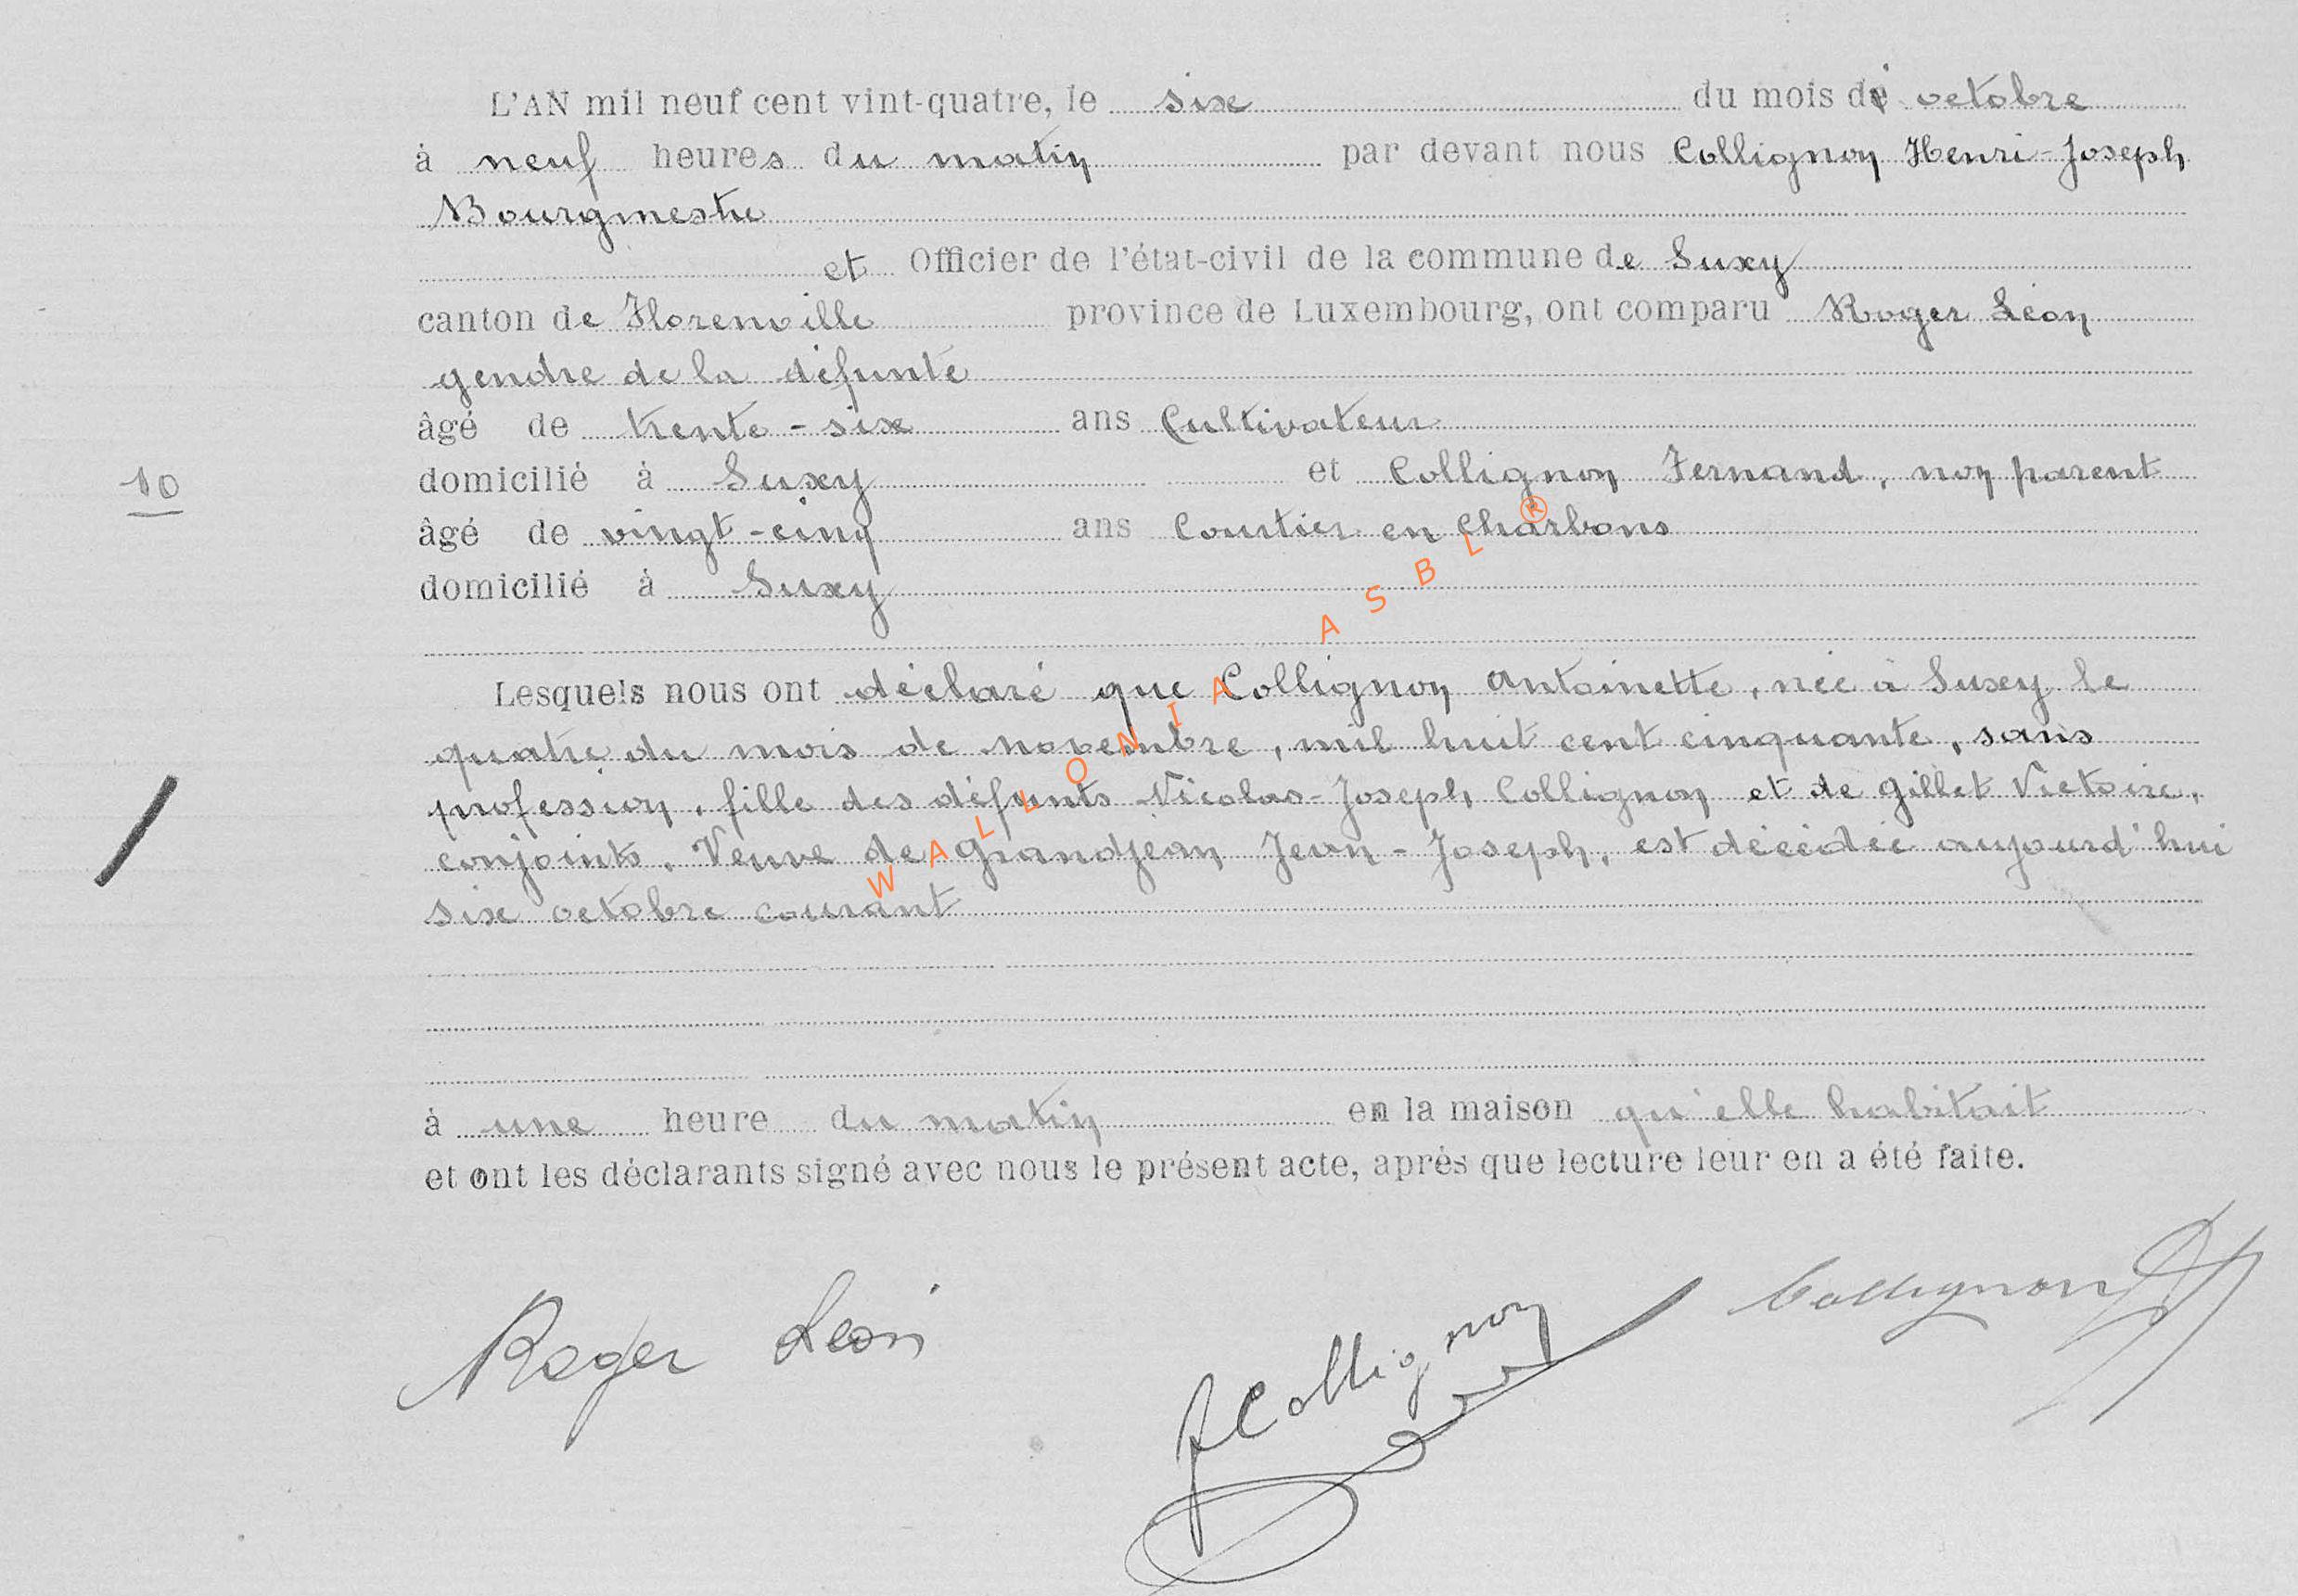 L'AN mil neuf cent vint-quatre, le six du mois d' octobre
à neuf heures du matin par devant nous Collignon Henri-Joseph
Bourgmestre
et Officier de l'état-civil de la commune de Suxy
canton de Florenville province de Luxembourg, ont comparu Roger Léon
gendre de la défunte
âgé de trente-six ans Cultivateur
domicilié à Suxy et Collignon Fernand, non parent
10
âgé de vingt-cinq ans Courtier en Charbons
domicilié à Suxy
Lesquels nous ont déclaré que Collignon Antoinette, née à Suxy le
quatre du mois de novembre, mil huit cent cinquante, sans
profession, fille des défunts Nicolas-Joseph Collignon et de Gillet Victoire,
conjoints, Veuve de Grandjean Jean-Joseph, est décédée aujourd'hui
six octobre courant
à une heure du matin en la maison qu'elle habitait
et ont les déclarants signé avec nous le présent acte, après que lecture leur en a été faite.
Roger Léon
F Collignon
Collignon
WALLONIA ASBL ®